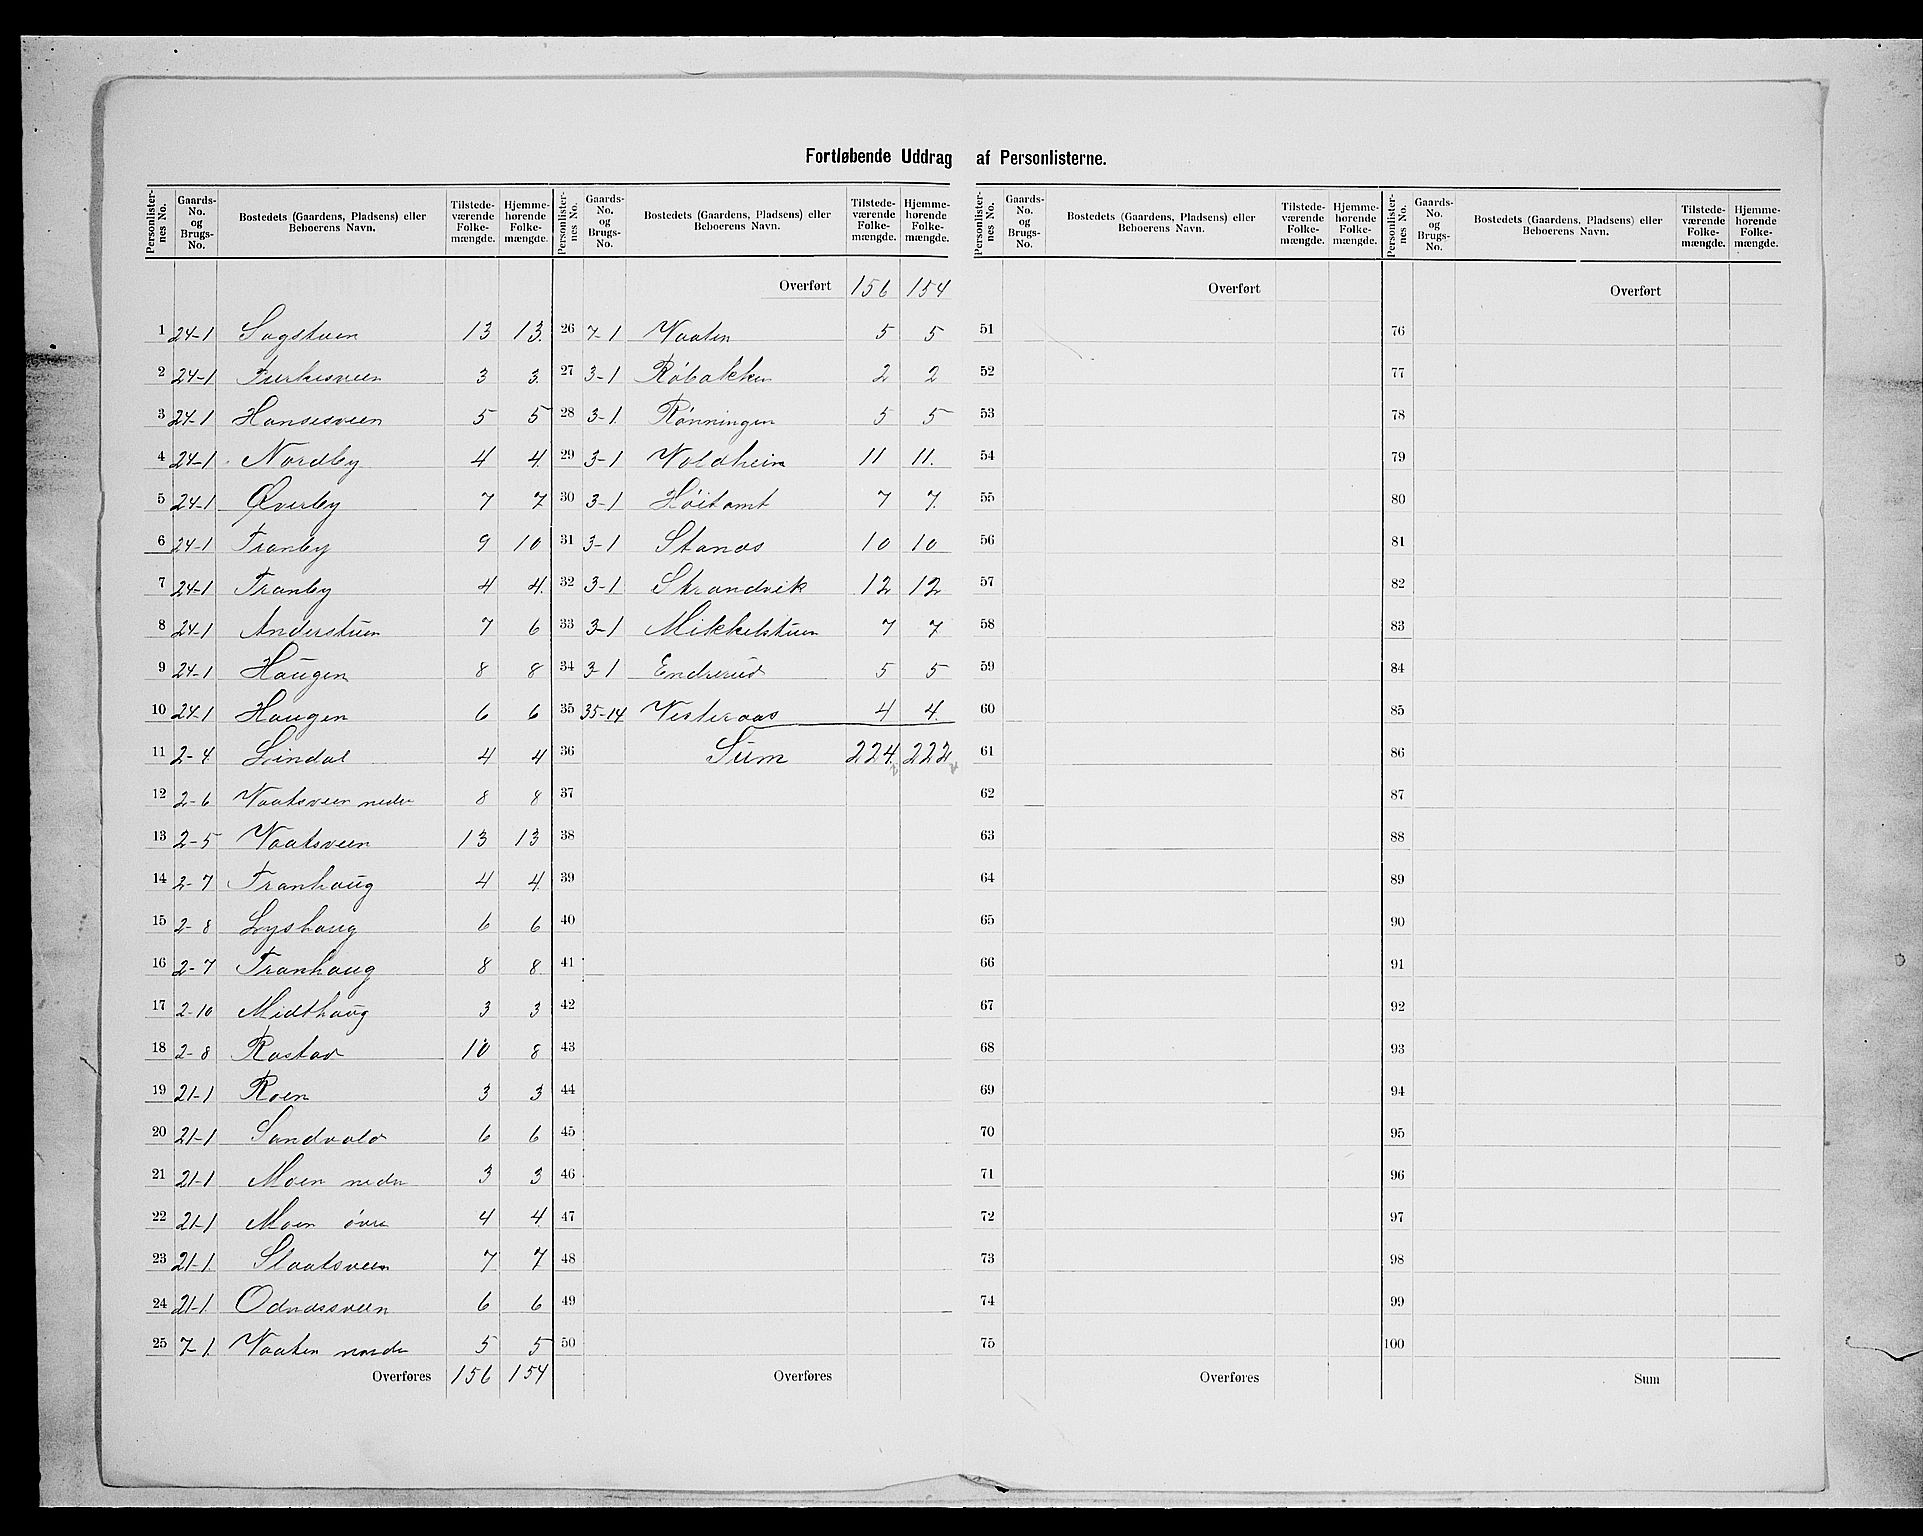 Fortløbende Uddrag af Personlisterne.
Personlister-nes No. | Gaards-No. og Brugs-No. | Bostedets (Gaardens, Pladsens) eller Beboerens Navn. | Tilstede-værende Folke-mængde. | Hjemme-hørende Folke-mængde.
1 24-1 Sagstuen 13 13.
2 24-1 3 3.
3 24-1 Hansesveen 5 5
4 24-1 Nordby 4 4.
5 24-1 Øverby 7 7
6 24-1 Tranby 9 10
7 24-1 Tranby 4 4.
8 24-1 Anderstuen 7 6
9 24-1 Haugen 8 8
10 24-1 Haugen 6 6
11 2-4 Lindal 4 4
12 2-6 Vaatsveen neder 8 8
13 2-5 Vaatsveen 13 13
14 2-7 Tranhaug 4 4
15 2-8 Lyshaug 6 6
16 2-7 Tranhaug 8 8
17 2-10 Midthaug 3 3
18 2-8 Rastad 10 8
19 21-1 Roen 3 3
20 21-1 Sandvold 6 6
21 21-1 Moen neder 3 3
22 21-1 Moen övre 4 4
23 21-1. Slaatsveen 7 7
24 21-1. Odnæssveen 6 6
25 7-1. Vaaten 5 5
Overføres 156 154
Personlister-nes No. | Gaards-No. og Brugs-No. | Bostedets (Gaardens, Pladsens) eller Beboerens Navn. | Tilstede-værende Folke-mængde. | Hjemme-hørende Folke-mængde.
Overført 156 154
26 7-1 Vaaten 5 5
27 3-1 Röbakken 2 2
28 3-1. Rönningen 5 5
29 3-1 Voldheim 11 11.
30 3-1 Höitomt 7 7.
31 3-1 10 10
32 3-1 Strandvik 12 12
33 3-1 Mikkelstuen 7 7
34 3-1 Endrerud 5 5
35 35-14 Vesteraas 4 4.
36 Sum 224 222
37
38
39
40
41
42
43
44
45
46
47
48
49
50
Overføres
Personlister-nes No. | Gaards-No. og Brugs-No. | Bostedets (Gaardens, Pladsens) eller Beboerens Navn. | Tilstede-værende Folke-mængde. | Hjemme-hørende Folke-mængde.
Overført
51
52
53
54
55
56
57
58
59
60
61
62
63
64
65
66
67
68
69
70
71
72
73
74
75
Overføres
Personlister-nes No. | Gaards-No. og Brugs-No. | Bostedets (Gaardens, Pladsens) eller Beboerens Navn. | Tilstede-værende Folke-mængde. | Hjemme-hørende Folke-mængde.
Overført
76
77
78
79
80
81
82
83
84
85
86
87
88
89
90
91
92
93
94
95
96
97
98
99
100
Sum